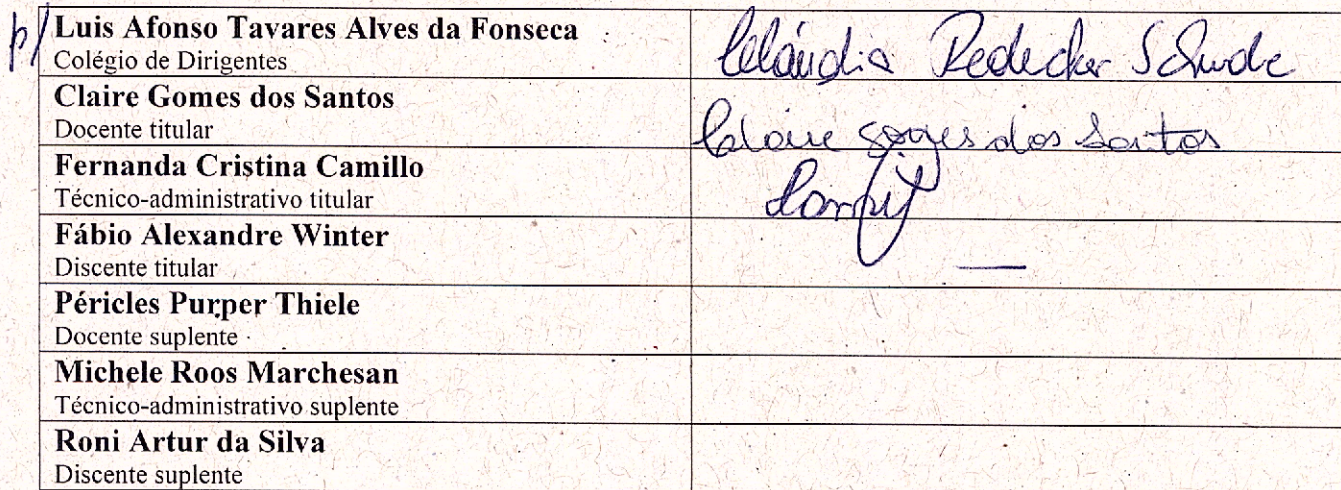 p/ Luis Afonso Tavares Alves da Fonseca
Colégio de Dirigentes
Cláudia Redecker Schwabe
Claire Gomes dos Santos
Docente titular
Claire Gomes dos Santos
Fernanda Cristina Camillo
Técnico-administrativo titular
Fábio Alexandre Winter
Discente titular
Péricles Purper Thiele
Docente suplente
Michele Roos Marchesan
Técnico-administrativo suplente
Roni Artur da Silva
Discente suplente